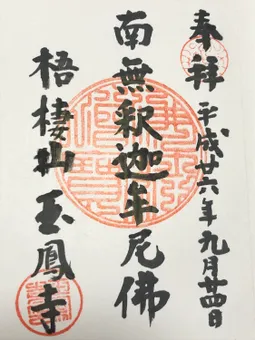 奉拝 平成廿六年九月廿四日
南無釋迦牟尼佛
梧棲山 玉鳳寺